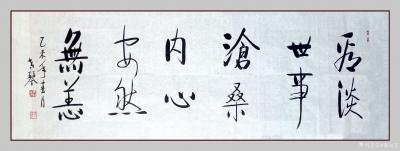 看淡
世事
滄桑
内心
安然
無恙
乙未年